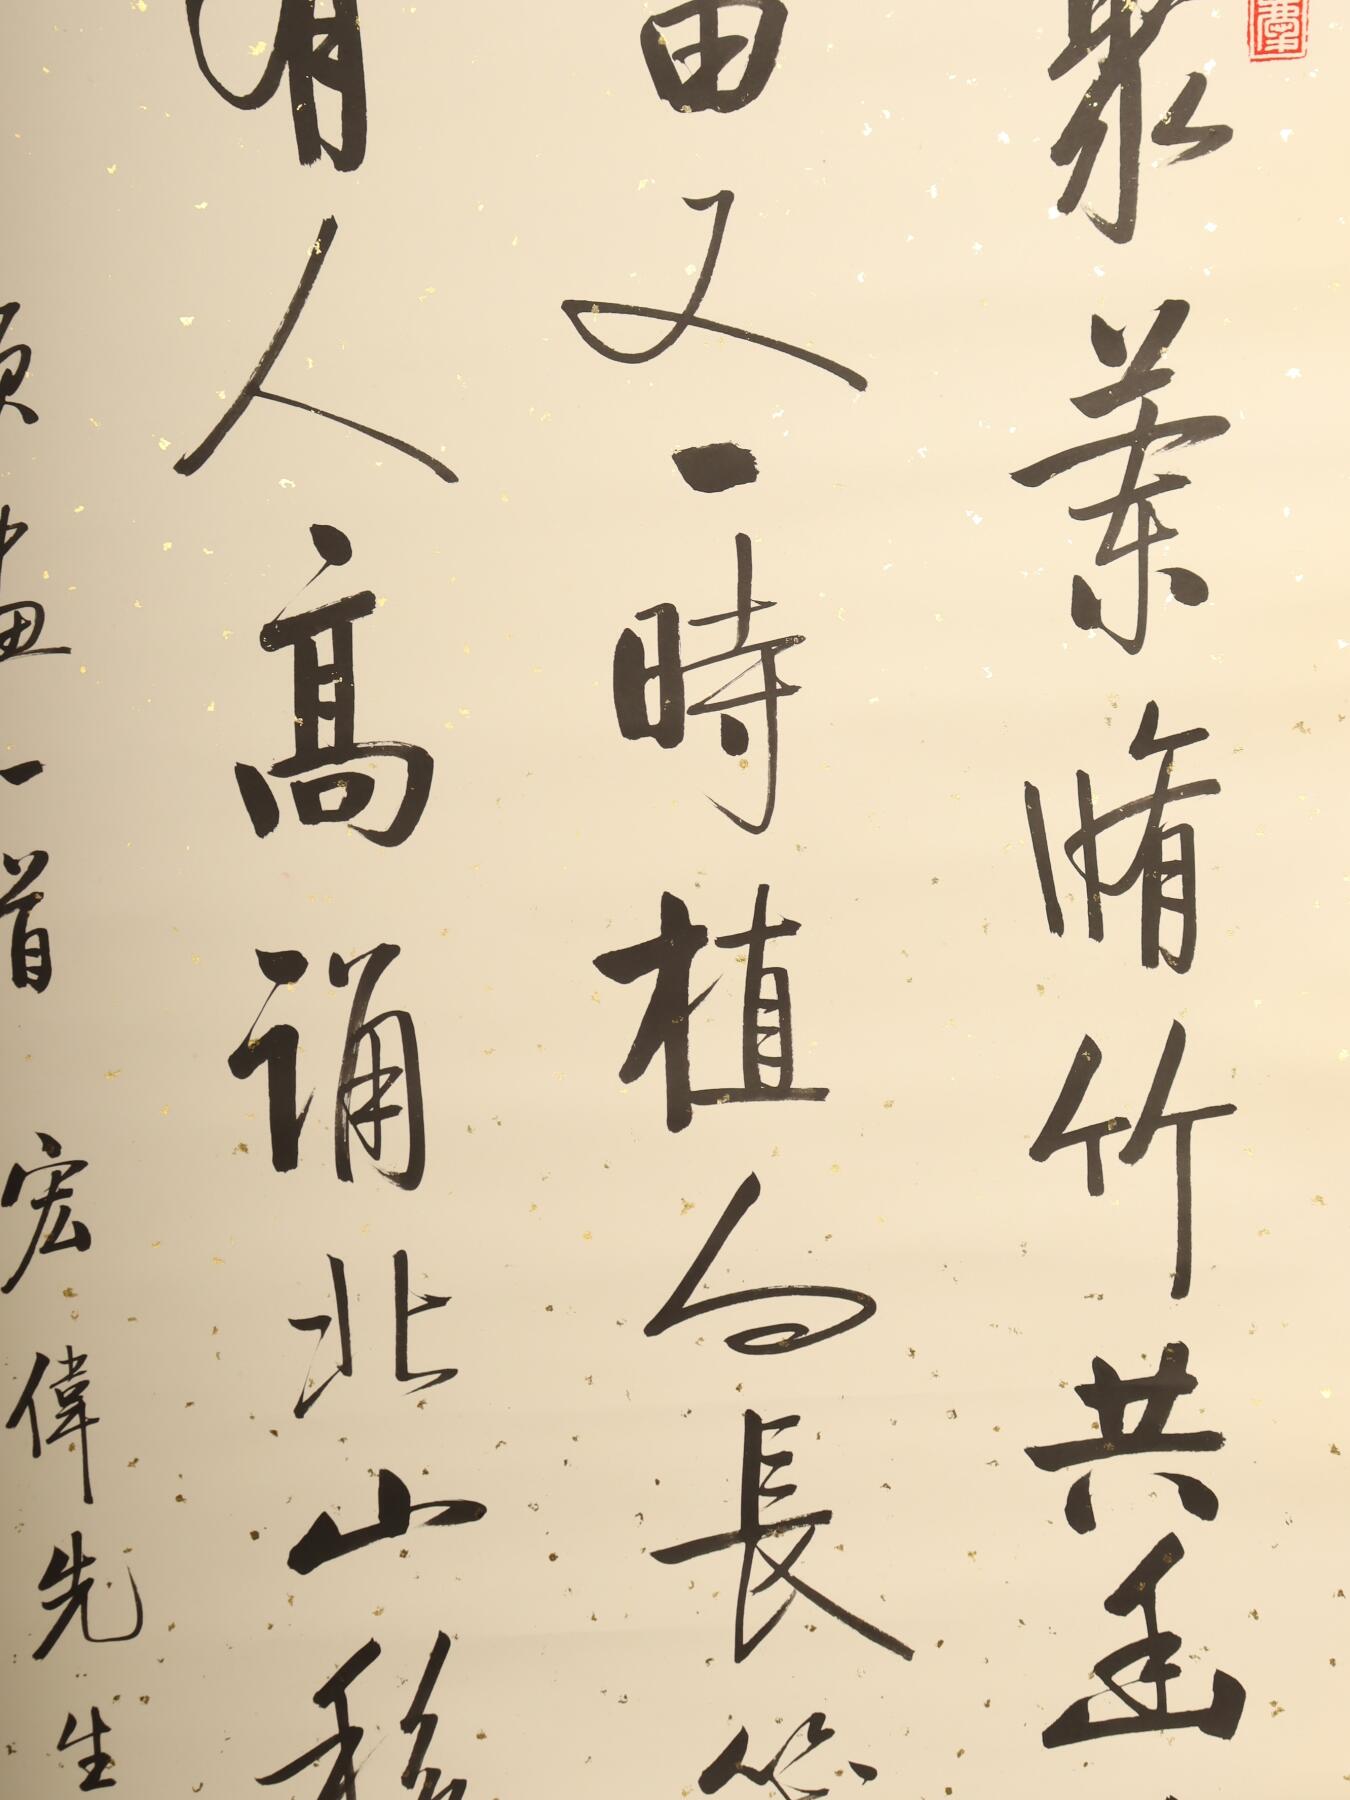 蘭脩竹共幽
又一時植向長
有人高誦北山移
畫一首 宏偉先生